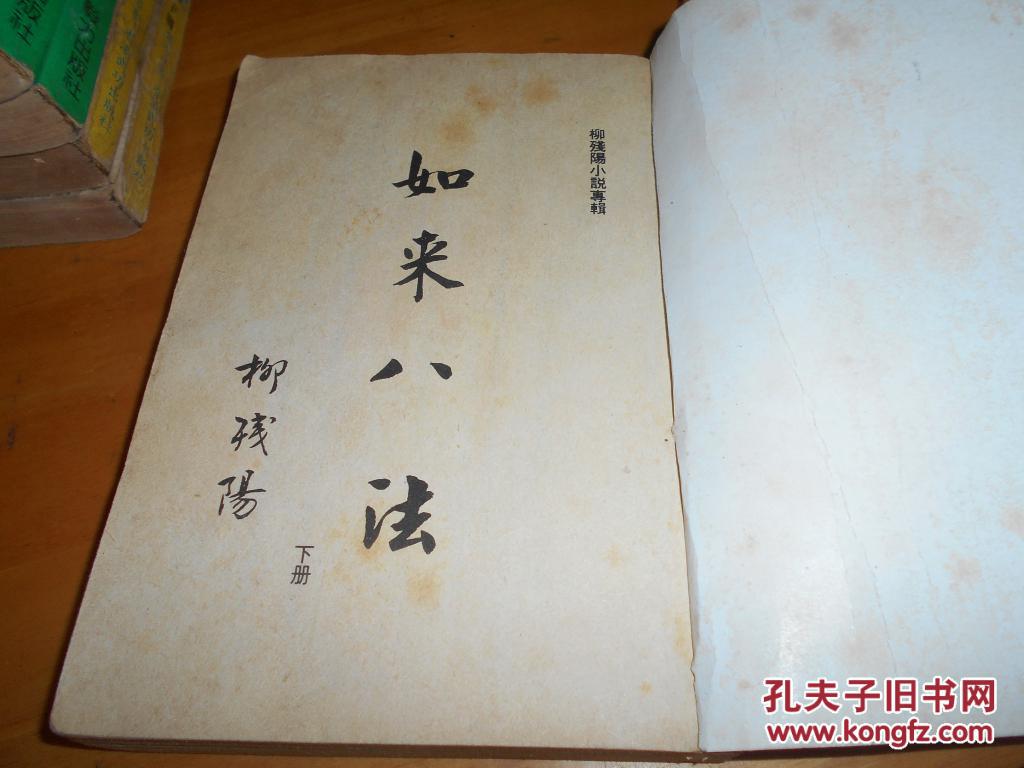 柳殘陽小説專輯
如来八法
柳残陽
下册
出版社
孔夫子旧书网
www.kongfz.com